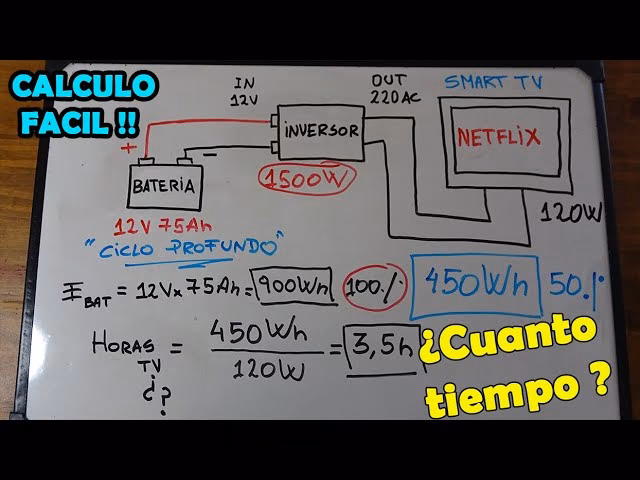 CALCULO
FACIL !!
IN
12V
OUT
220AC
SMART TV
INVERSOR
NETFLIX
1500W
+
-
BATERIA
120W
12V 75Ah
"CICLO PROFUNDO"
EBAT = 12V x 75Ah = 900Wh 100% 450Wh 50%
HORAS TV ¿? = 450Wh / 120W = 3,5h
¿Cuanto
tiempo ?